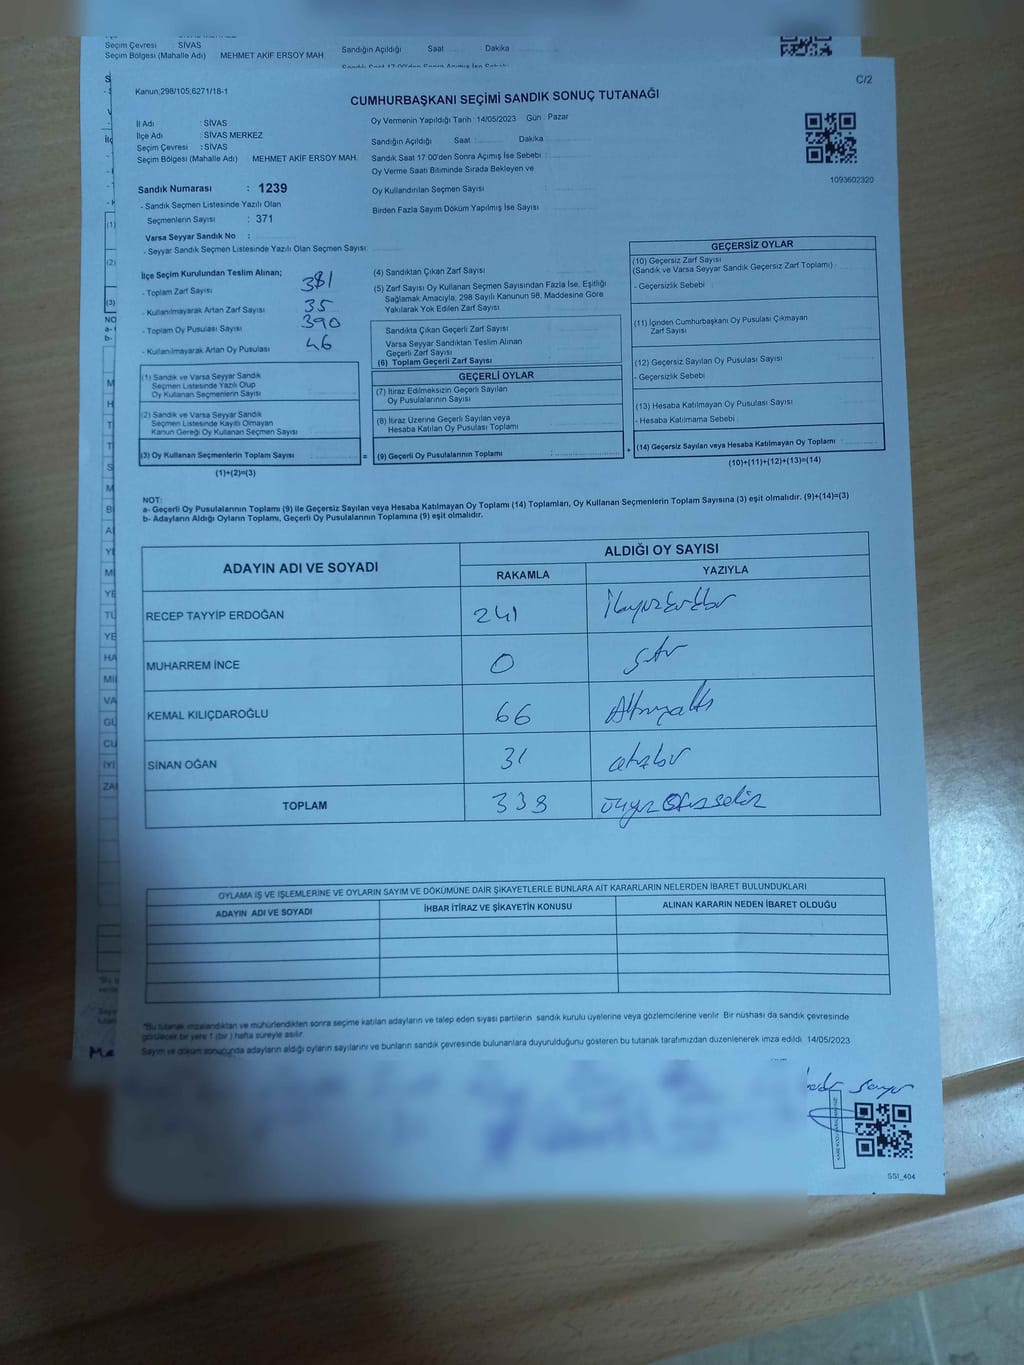 Seçim Çevresi SİVAS
Seçim Bölgesi (Mahalle Adı) MEHMET AKİF ERSOY MAH.
Sandığın Açıldığı Saat Dakika
C/2
Kanun;298/105,6271/18-1
CUMHURBAŞKANI SEÇİMİ SANDIK SONUÇ TUTANAĞI
İl Adı : SİVAS
İlçe Adı : SİVAS MERKEZ
Seçim Çevresi : SİVAS
Seçim Bölgesi (Mahalle Adı) MEHMET AKİF ERSOY MAH.
Oy Vermenin Yapıldığı Tarih :14/05/2023 Gün : Pazar
Sandığın Açıldığı Saat Dakika
Sandık Saat 17 00'den Sonra Açımış İse Sebebi
Oy Verme Saati Bitiminde Sırada Bekleyen ve
Oy Kullandırılan Seçmen Sayısı
Birden Fazla Sayım Döküm Yapılmış İse Sayısı
1093602320
Sandık Numarası : 1239
- Sandık Seçmen Listesinde Yazılı Olan
Seçmenlerin Sayısı : 371
Varsa Seyyar Sandık No :
- Seyyar Sandık Seçmen Listesinde Yazılı Olan Seçmen Sayısı
İlçe Seçim Kurulundan Teslim Alınan;
- Toplam Zarf Sayısı 381
- Kullanılmayarak Artan Zarf Sayısı 35
- Toplam Oy Pusulası Sayısı 390
- Kullanılmayarak Artan Oy Pusulası 46
(1) Sandık ve Varsa Seyyar Sandık
Seçmen Listesinde Yazılı Olup
Oy Kullanan Seçmenlerin Sayısı
(2) Sandık ve Varsa Seyyar Sandık
Seçmen Listesinde Kayıtlı Olmayan
Kanun Gereği Oy Kullanan Seçmen Sayısı
(3) Oy Kullanan Seçmenlerin Toplam Sayısı :
(1)+(2)=(3)
=
(4) Sandıktan Çıkan Zarf Sayısı
(5) Zarf Sayısı Oy Kullanan Seçmen Sayısından Fazla İse, Eşitliği
Sağlamak Amacıyla, 298 Sayılı Kanunun 98. Maddesine Göre
Yakılarak Yok Edilen Zarf Sayısı
Sandıkta Çıkan Geçerli Zarf Sayısı
Varsa Seyyar Sandıktan Teslim Alınan
Geçerli Zarf Sayısı
(6) Toplam Geçerli Zarf Sayısı
GEÇERLİ OYLAR
(7) İtiraz Edilmeksizin Geçerli Sayılan
Oy Pusulalarının Sayısı
(8) İtiraz Üzerine Geçerli Sayılan veya
Hesaba Katılan Oy Pusulası Toplamı
(9) Geçerli Oy Pusulalarının Toplamı :
+
GEÇERSİZ OYLAR
(10) Geçersiz Zarf Sayısı
(Sandık ve Varsa Seyyar Sandık Geçersiz Zarf Toplamı)
- Geçersizlik Sebebi :
(11) İçinden Cumhurbaşkanı Oy Pusulası Çıkmayan
Zarf Sayısı
(12) Geçersiz Sayılan Oy Pusulası Sayısı
- Geçersizlik Sebebi :
(13) Hesaba Katılmayan Oy Pusulası Sayısı
- Hesaba Katılmama Sebebi
(14) Geçersiz Sayılan veya Hesaba Katılmayan Oy Toplamı
(10)+(11)+(12)+(13)=(14)
NOT:
a- Geçerli Oy Pusulalarının Toplamı (9) ile Geçersiz Sayılan veya Hesaba Katılmayan Oy Toplamı (14) Toplamları, Oy Kullanan Seçmenlerin Toplam Sayısına (3) eşit olmalıdır. (9)+(14)=(3)
b- Adayların Aldığı Oyların Toplamı, Geçerli Oy Pusulalarının Toplamına (9) eşit olmalıdır.
ADAYIN ADI VE SOYADI ALDIĞI OY SAYISI
RAKAMLA YAZIYLA
RECEP TAYYİP ERDOĞAN 241
MUHARREM İNCE 0 sıfır
KEMAL KILIÇDAROĞLU 66 Altmışaltı
SİNAN OĞAN 31 otuzbir
TOPLAM 338 üçyüz otuzsekiz
OYLAMA İŞ VE İŞLEMLERİNE VE OYLARIN SAYIM VE DÖKÜMÜNE DAİR ŞİKAYETLERLE BUNLARA AİT KARARLARIN NELERDEN İBARET BULUNDUKLARI
ADAYIN ADI VE SOYADI İHBAR İTİRAZ VE ŞİKAYETİN KONUSU ALINAN KARARIN NEDEN İBARET OLDUĞU
"Bu tutanak imzalandıktan ve mühürlendikten sonra seçime katılan adayların ve talep eden siyasi partilerin sandık kurulu üyelerine veya gözlemcilerine verilir Bir nüshası da sandık çevresinde
görülecek bir yere 1 (bir ) hafta süreyle asılır.
Sayım ve döküm sonucunda adayların aldığı oyların sayılarını ve bunların sandık çevresinde bulunanlara duyurulduğunu gösteren bu tutanak tarafımızdan düzenlenerek imza edildi 14/05/2023
SSI_404